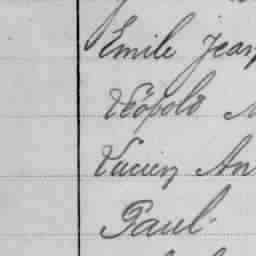 Emile Jean
Léopold
Lucien An
Paul